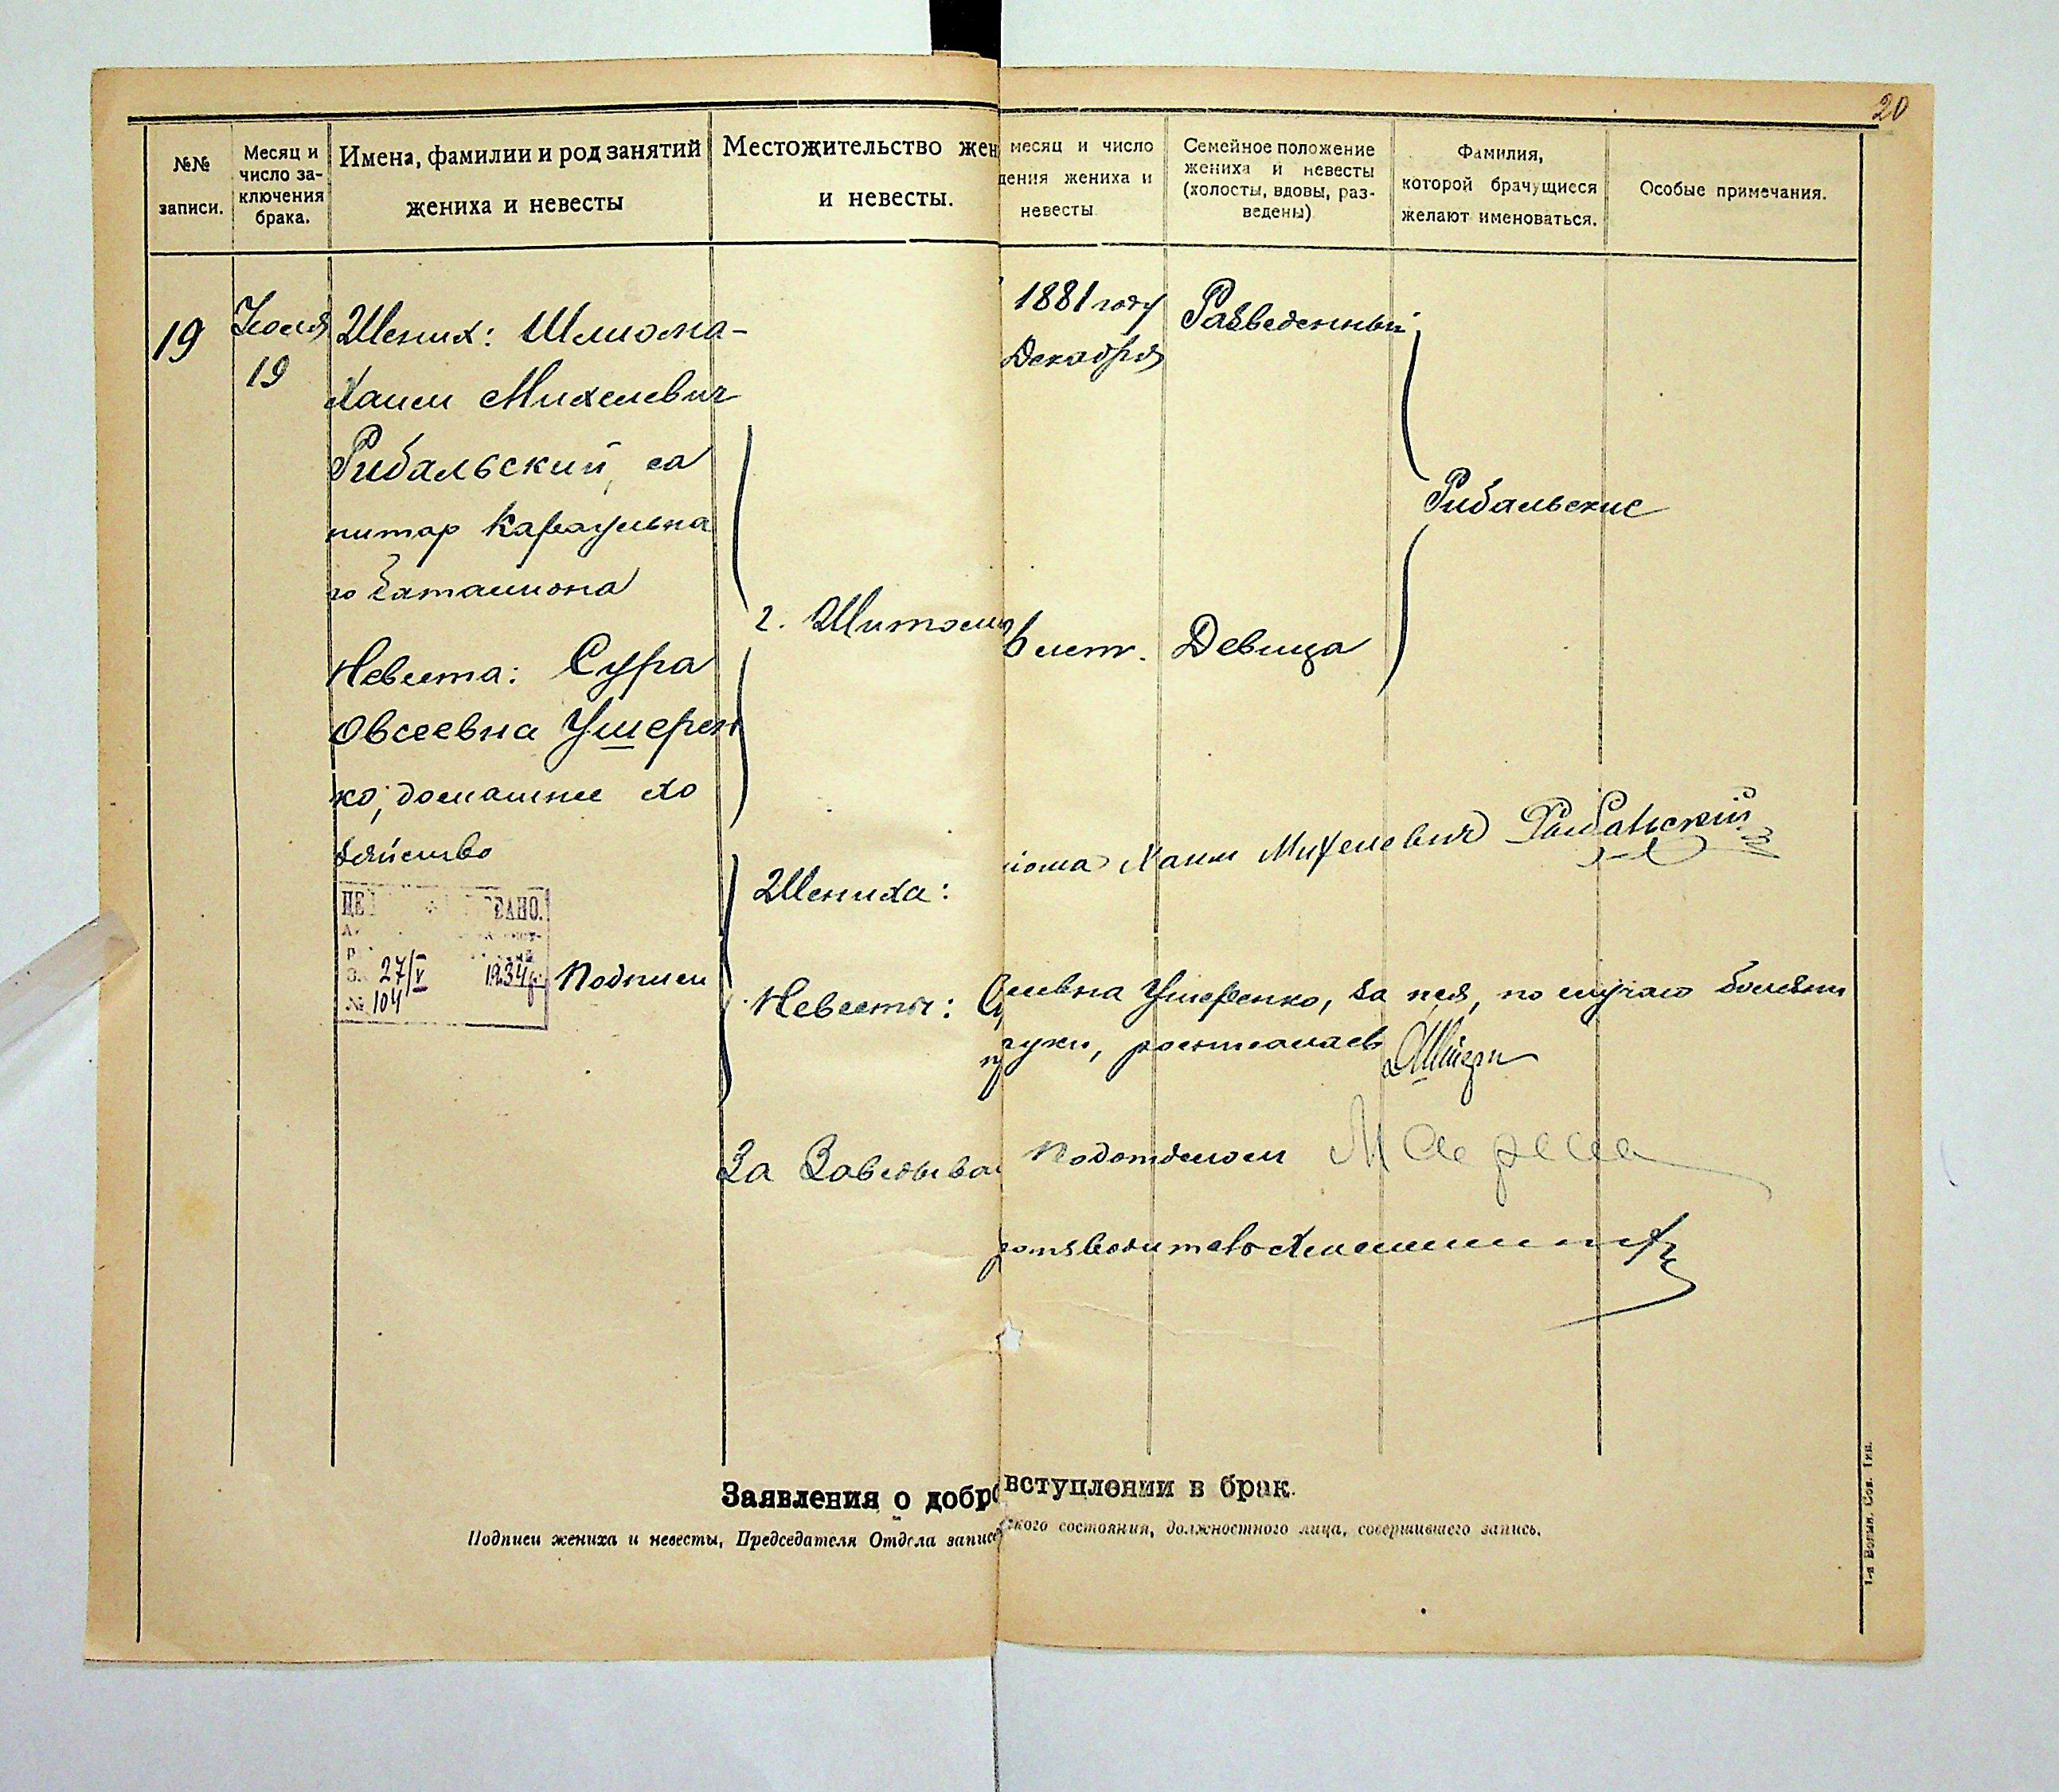 20
№№
записи.
Месяц и
число за-
ключения
брака.
Имена, фамилии и род занятий
жениха и невесты
Местожительство жен
и невесты.
месяц и число
дения жениха и
невесты
Семейное положение
жениха и невесты
(холосты, вдовы, раз-
ведены)
Фамилия,
которой брачущиеся
желают именоваться.
Особые примечания.
19
Июля
19
Жених: Шлиома-
Хаим Михелевич
Рибальский, са
нитар Караульно
го баталиона
Невеста: Сура
Овсеевна Ушерен
ко, домашнее хо
зяйство
г. Житоми
1881 году
Декабря
лет.
Разведенный
Девица
Рибальские
27/V 1934 г.
№ 104
Подписи
Жениха:
иома Хаим Михелевич Рибальский
Невесты:
еевна Ушеренко, за нея, по случаю болезни
руки, росписалась
За Заведыва
Подотделом
Заявления о добро
вступлении в брак.
Подписи жениха и невесты, Председателя Отдела записе
ского состояния, должностного лица, совершившего запись.
1-я Волын. Сов. Тип.